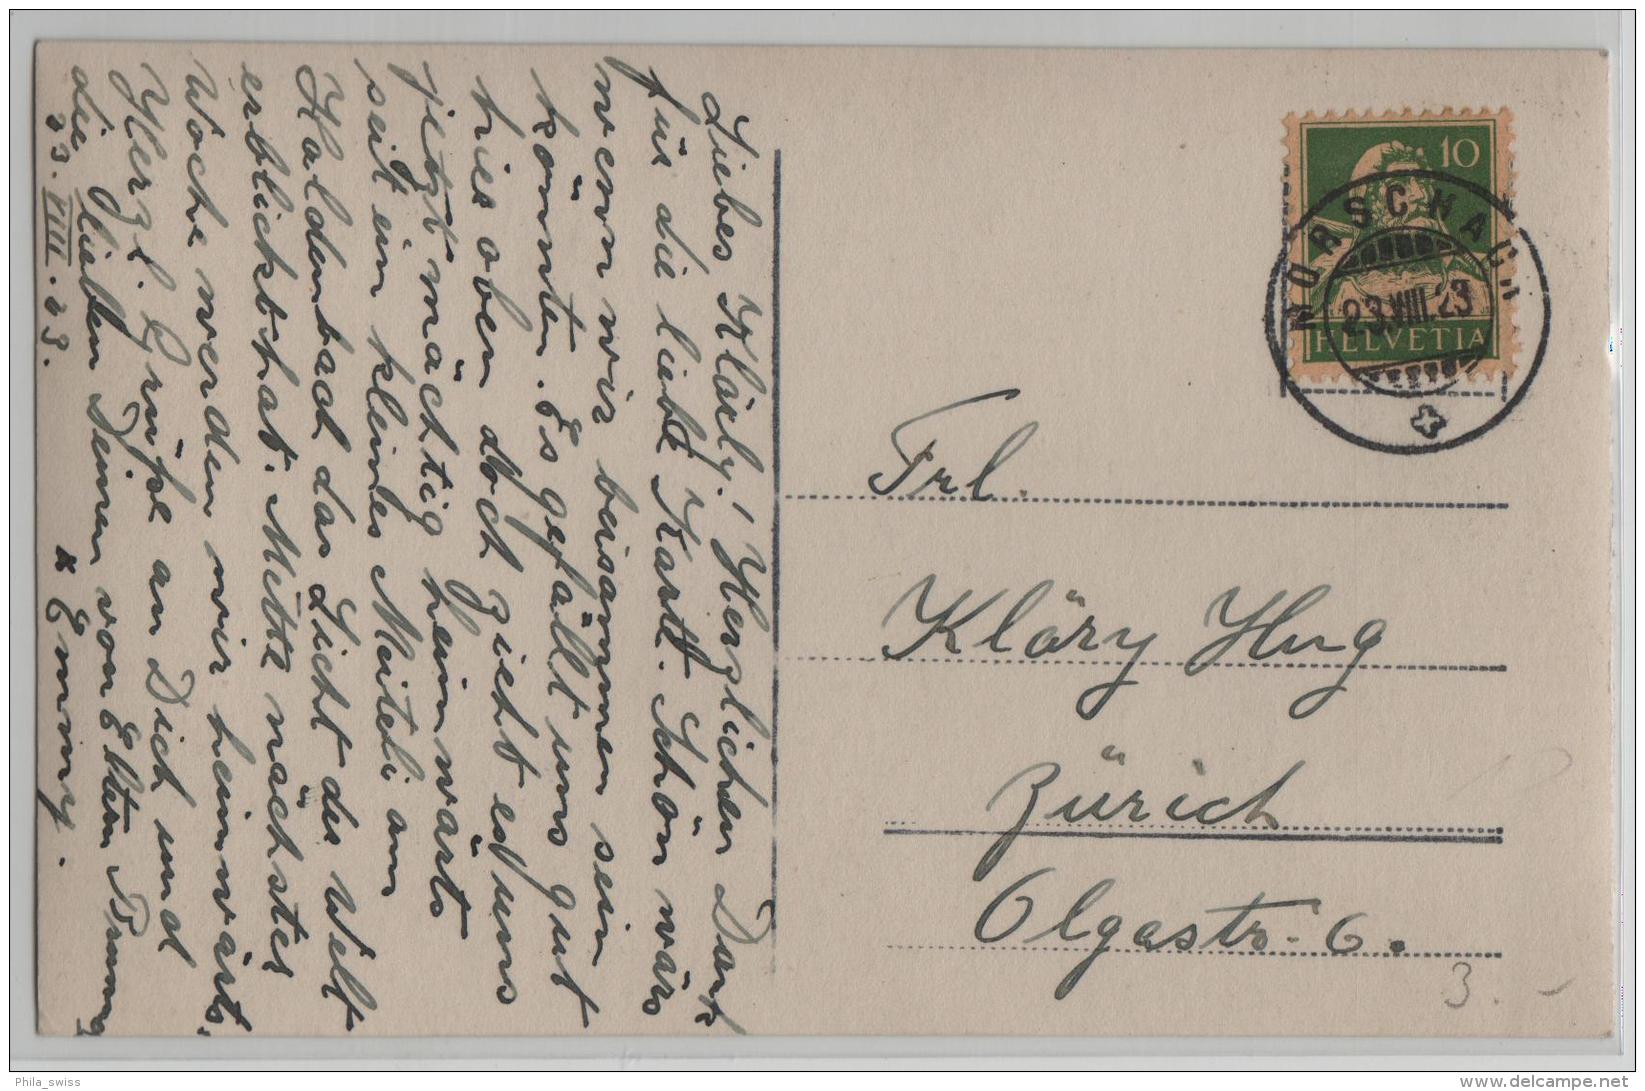 Liebes Kläry! Herzlichen Dank
für die liebe Karte. Schön wärs
wenn wir beisammen sein
könnten. Es gefällt uns gut
hier oben doch zieht es uns
jetzt mächtig heimwärts
seit ein kleines Meiteli am
Haldenbach das Licht der Welt
erblickt hat. Mitte nächster
Woche werden wir heimwärts.
Herzl. Grüsse an Dich und
die lieben Deinen von Eltern
23. VIII. 23. & Emmy.
10
RORSCHACH
23.VIII.23
HELVETIA
Frl.
Kläry Hug
Zürich
Olgastr. 6.
3. -
Phila_swiss
delcampe.net